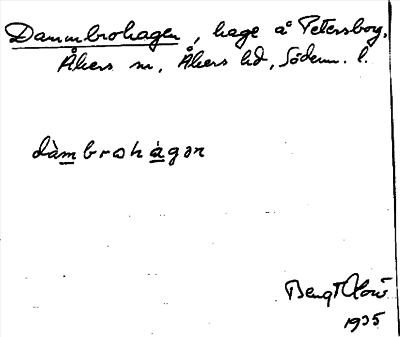 Dammbrohagen, hage å Petersborg,
Åkers sn, Åkers hd, Söderm. l.
dàmbrohàgən
Bengt Olow
1935